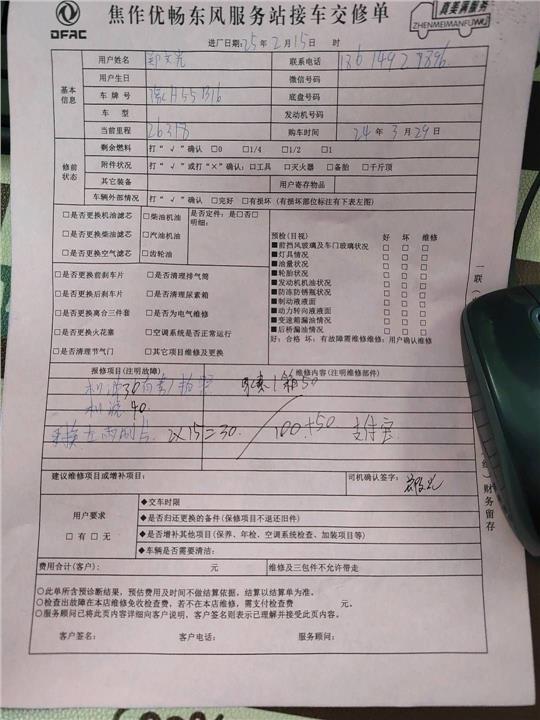 DFAC
焦作优畅东风服务站接车交修单
真美满服务
ZHENMEIMANFUWU
进厂日期:25年2月15日 时
基本信息
用户姓名 联系电话
用户生日 微信号码
车牌号 底盘号码
车型 发动机号码
当前里程 26318 购车时间 24年3月29日
修前状态
剩余燃料 打“√”确认 □0 □1/4 □1/2 □1
附件状况 打“√”或打“×”确认:□工具 □灭火器 □备胎 □千斤顶
其它装备 用户寄存物品
车辆外部情况 打“√”确认 □完好 □有损坏(有损坏部位标注有下表左图)
□是否更换机油滤芯 □柴油机油 是否定件:是□否□
□是否更换柴油滤芯 □汽油机油 明细:
□是否更换空气滤芯 □齿轮油
□是否更换前刹车片 □是否清理排气筒
□是否更换后刹车片 □是否清理尿素箱
□是否更换离合三件套 □是否为电气维修
□是否更换火花塞 □空调系统是否正常运行
□是否清理节气门 □其它项目维修及更换
预检(目视) 好 坏 维修
■前挡风玻璃及车门玻璃状况 □ □ □
■灯具情况 □ □ □
■油量状况 □ □ □
■轮胎状况 □ □ □
■发动机机油状况 □ □ □
■防冻防锈瓶状况 □ □ □
■制动液液面 □ □ □
■动力转向液液面 □ □ □
■变速箱漏油情况 □ □ □
■后桥漏油情况 □ □ □
好:合格 坏:有故障需维修维修:用户确认维修
报修项目(注明故障) 维修内容(注明维修部件)
机油30
机滤40
2×15=30 100+50 支付宝
建议维修项目或增补项目: 司机确认签字:
用户要求
□有□无
◆交车时限
◆是否归还更换的备件(保修项目不退还旧件)
◆是否增补其他项目(保养、年检、空调系统检查、加装项目等)
◆车辆是否需要清洁:
费用合计(客户): 元 维修及三包件不允许带走
○此单所含预诊断结果,预估费用及时间不做结算依据,结算以结算单为准。
○检查出故障在本店维修免收检查费,若不在本店维修,需支付检查费 元。
○服务顾问已将此页内容详细向客户说明,客户签名则表示已理解并接受此页内容。
客户签名: 客户电话: 服务顾问:
一联
财务留存